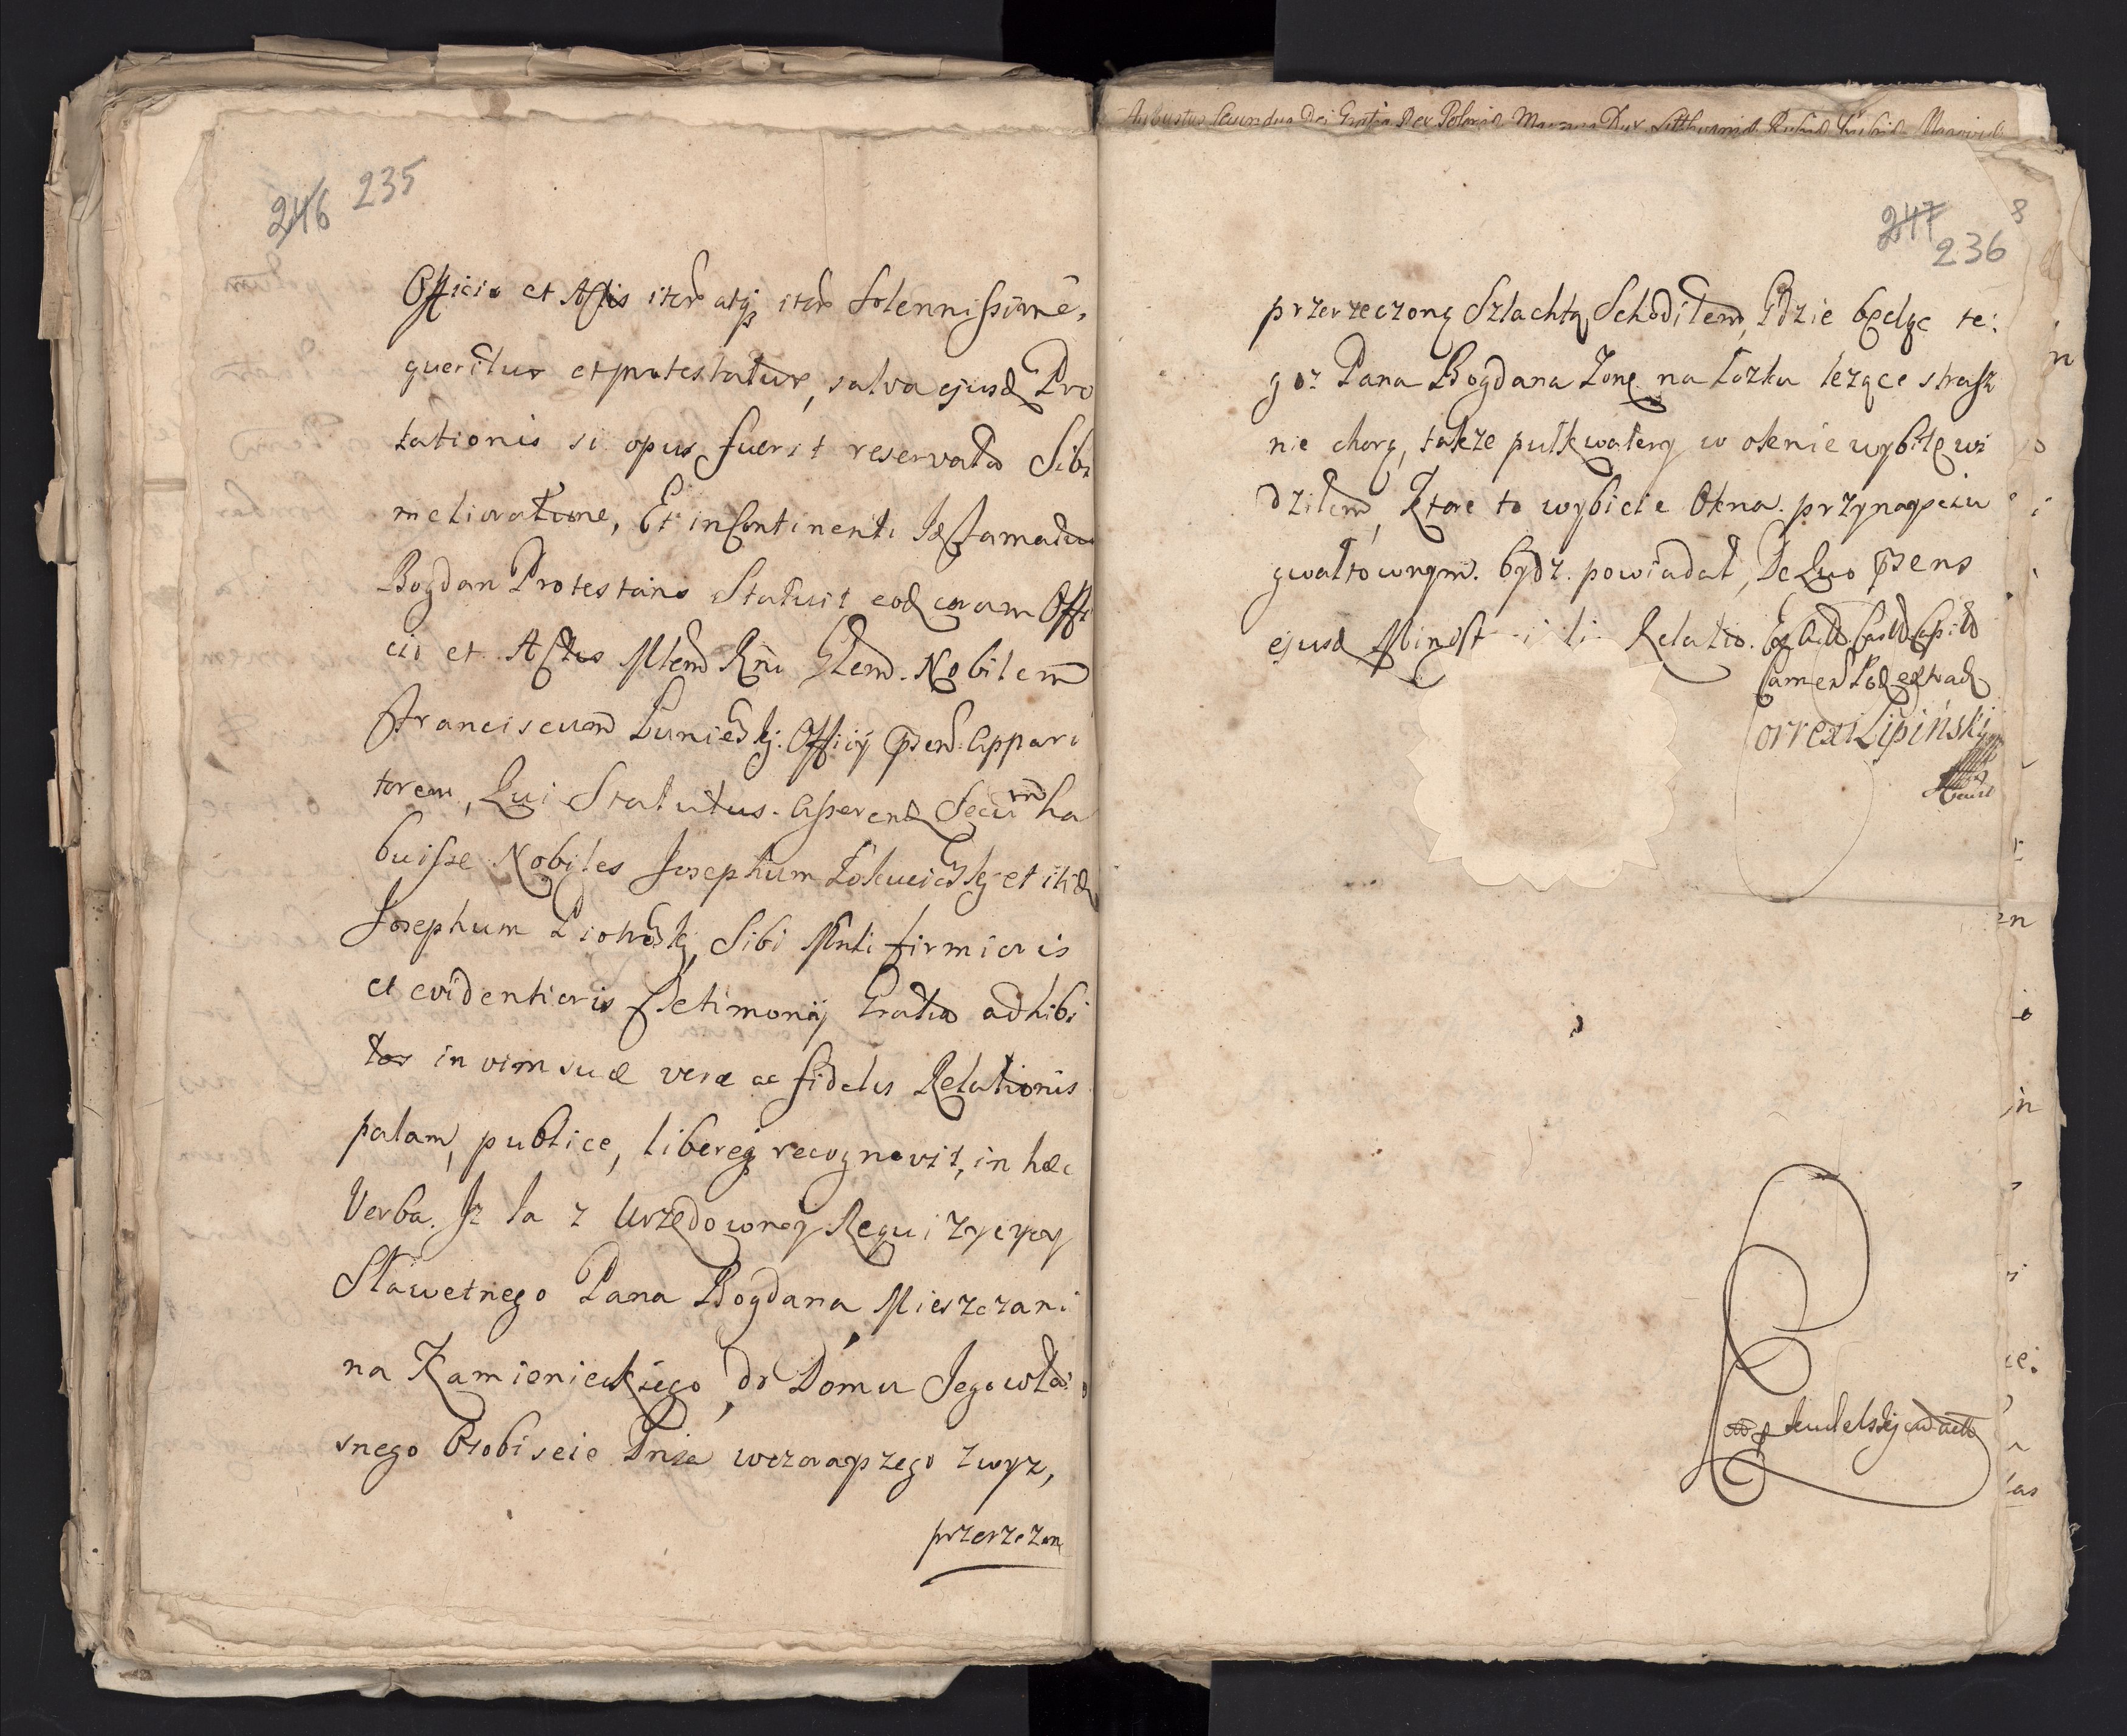 246 235
Officio et Actis iterũ atq iterũ Solennissimè,
queritur et protestatur, salva ejusd Pro
tationis si opus fuerit reservata Sibi
melioratione, Et in Continenti Idē famatus
Bogdan Protestans Statuit eod coram Offi
cio et Actis Mtem Rni Gtem. Nobilem
Franciscum Kunicki Officij pñtis Appari
torem, Qui Statutus. Asserend Secum ha
buisse Nobiles Josephum et itid
Josephum Sibi Mnti firmioris
et evidentioris Testimonij Gratia adhibi
tos in vim suæ veræ ac fidelis Relationis
palam, publice, libereq recognovit, in hæc
Verba. Jz Ja z Urzędowney Requizycyey
Sławetnego Pana Bogdana Mieszczani
na Kamienieckiego, do Domu Jego wła:
snego Osobiscie Dnia wczorayszego zwysz,
przerzeżon
Augustus Secundus Dei Gratia Rex Poloniæ Magnus Dux Litthuaniæ Russiæ Prussiæ Masoviæ
247 8
236
przerzeczoną Szlachtą Schodiłem, Gdzie będąc te:
goz Pana Bogdana Zonę na Łozku lezące strasz
nie chorą, także pułkwaterę w oknie wybitę wi
dziłem, Ktore to wybicie Okna. przynaysciu
gwałtownym. bydz. powiadał, De Quo pñens
ejusd Minist i li Relatio. Ex Actis Castr Capit
Camen Pod extrad
Correxi Lipiński